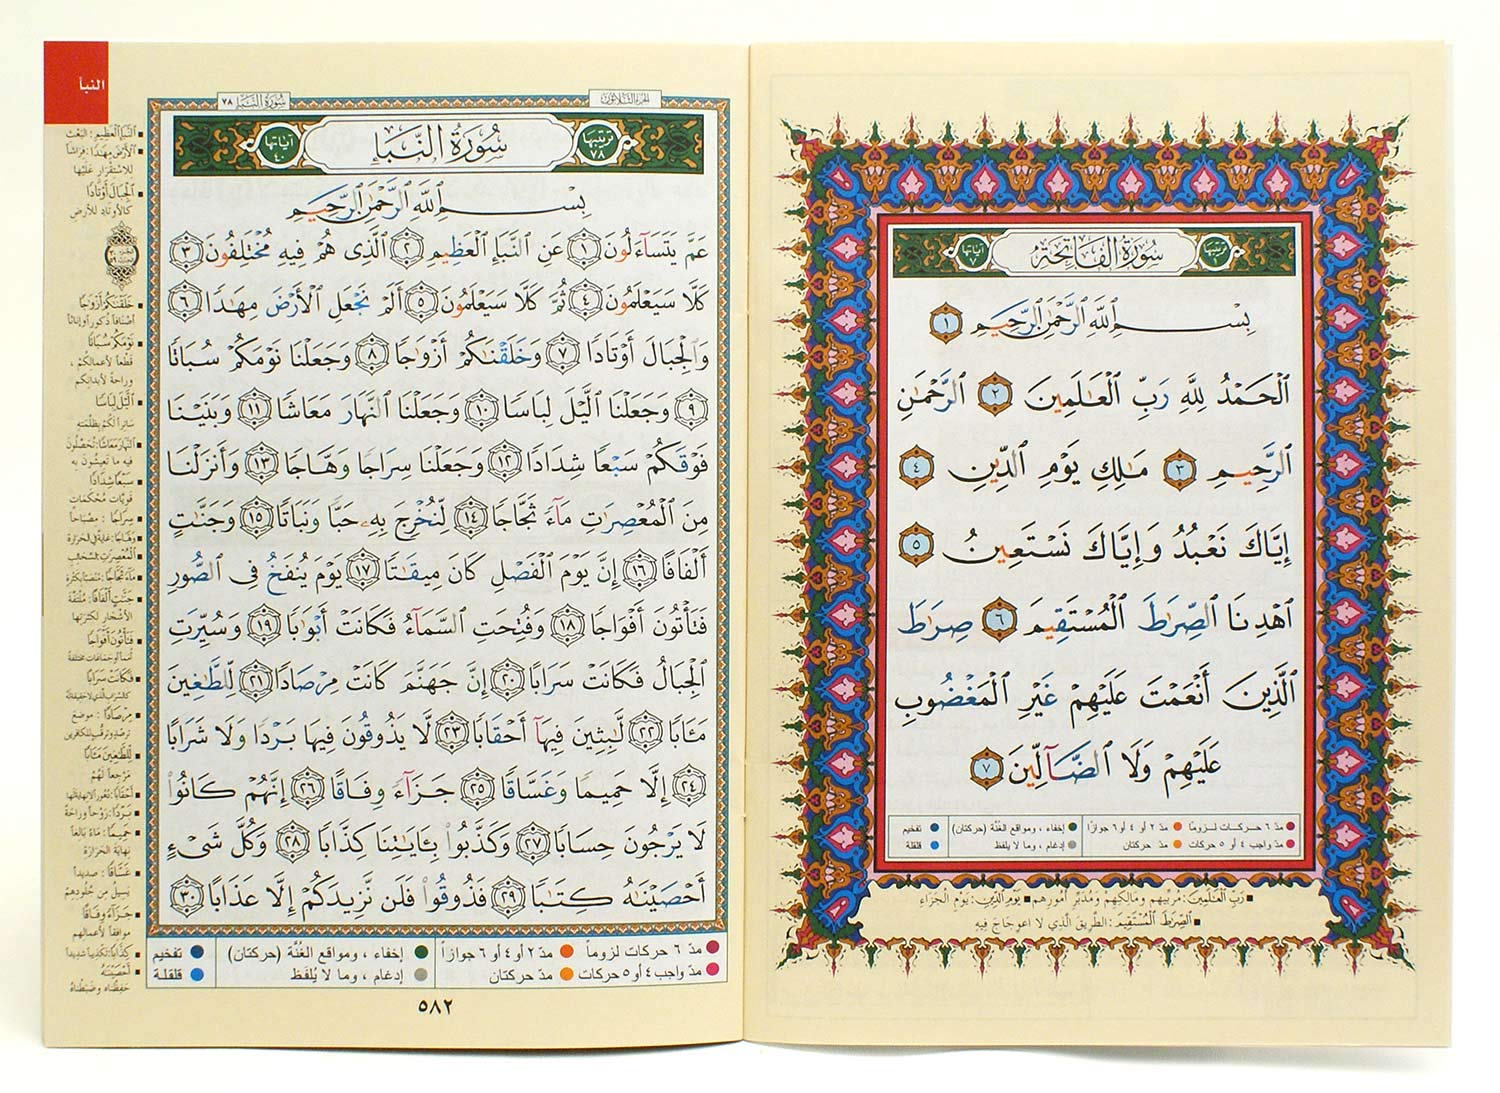 سُورَةُ الفَاتِحَةِ
ترتيبها ١
آياتها ٧
بِسْمِ ٱللَّهِ ٱلرَّحْمَٰنِ ٱلرَّحِيمِ ١
ٱلْحَمْدُ لِلَّهِ رَبِّ ٱلْعَٰلَمِينَ ٢ ٱلرَّحْمَٰنِ
ٱلرَّحِيمِ ٣ مَٰلِكِ يَوْمِ ٱلدِّينِ ٤
إِيَّاكَ نَعْبُدُ وَإِيَّاكَ نَسْتَعِينُ ٥
ٱهْدِنَا ٱلصِّرَٰطَ ٱلْمُسْتَقِيمَ ٦ صِرَٰطَ
ٱلَّذِينَ أَنْعَمْتَ عَلَيْهِمْ غَيْرِ ٱلْمَغْضُوبِ
عَلَيْهِمْ وَلَا ٱلضَّآلِّينَ ٧
مدّ ٦ حركات لزوماً مدّ ٢ أو ٤ أو ٦ جوازاً إخفاء ، ومواقع الغُنَّة (حركتان) تفخيم
مدّ واجب ٤ أو ٥ حركات مدّ حركتان إدغام ، وما لا يُلفَظ قلقلة
رَبِّ ٱلْعَٰلَمِينَ: مُرَبِّيهِم ومَالِكِهِم ومُدَبِّرِ أُمُورِهِم يَوْمِ ٱلدِّينِ: يَوْمِ الجَزَاءِ
ٱلصِّرَٰطَ ٱلْمُسْتَقِيمَ: الطَّرِيقَ الَّذِي لا اعوِجَاجَ فِيهِ
النبأ
الجزء الثلاثون
سُورَةُ النَّبَإِ ٧٨
ترتيبها ٧٨
سُورَةُ النَّبَإِ
آياتها ٤٠
بِسْمِ ٱللَّهِ ٱلرَّحْمَٰنِ ٱلرَّحِيمِ
عَمَّ يَتَسَآءَلُونَ ١ عَنِ ٱلنَّبَإِ ٱلْعَظِيمِ ٢ ٱلَّذِى هُمْ فِيهِ مُخْتَلِفُونَ ٣
كَلَّا سَيَعْلَمُونَ ٤ ثُمَّ كَلَّا سَيَعْلَمُونَ ٥ أَلَمْ نَجْعَلِ ٱلْأَرْضَ مِهَٰدًا ٦
وَٱلْجِبَالَ أَوْتَادًا ٧ وَخَلَقْنَٰكُمْ أَزْوَٰجًا ٨ وَجَعَلْنَا نَوْمَكُمْ سُبَاتًا
٩ وَجَعَلْنَا ٱلَّيْلَ لِبَاسًا ١٠ وَجَعَلْنَا ٱلنَّهَارَ مَعَاشًا ١١ وَبَنَيْنَا
فَوْقَكُمْ سَبْعًا شِدَادًا ١٢ وَجَعَلْنَا سِرَاجًا وَهَّاجًا ١٣ وَأَنزَلْنَا
مِنَ ٱلْمُعْصِرَٰتِ مَآءً ثَجَّاجًا ١٤ لِّنُخْرِجَ بِهِۦ حَبًّا وَنَبَاتًا ١٥ وَجَنَّٰتٍ
أَلْفَافًا ١٦ إِنَّ يَوْمَ ٱلْفَصْلِ كَانَ مِيقَٰتًا ١٧ يَوْمَ يُنفَخُ فِى ٱلصُّورِ
فَتَأْتُونَ أَفْوَاجًا ١٨ وَفُتِحَتِ ٱلسَّمَآءُ فَكَانَتْ أَبْوَٰبًا ١٩ وَسُيِّرَتِ
ٱلْجِبَالُ فَكَانَتْ سَرَابًا ٢٠ إِنَّ جَهَنَّمَ كَانَتْ مِرْصَادًا ٢١ لِّلطَّٰغِينَ
مَـَٔابًا ٢٢ لَّٰبِثِينَ فِيهَآ أَحْقَابًا ٢٣ لَّا يَذُوقُونَ فِيهَا بَرْدًا وَلَا شَرَابًا
٢٤ إِلَّا حَمِيمًا وَغَسَّاقًا ٢٥ جَزَآءً وِفَاقًا ٢٦ إِنَّهُمْ كَانُوا۟
لَا يَرْجُونَ حِسَابًا ٢٧ وَكَذَّبُوا۟ بِـَٔايَٰتِنَا كِذَّابًا ٢٨ وَكُلَّ شَىْءٍ
أَحْصَيْنَٰهُ كِتَٰبًا ٢٩ فَذُوقُوا۟ فَلَن نَّزِيدَكُمْ إِلَّا عَذَابًا ٣٠
مدّ ٦ حركات لزوماً مدّ ٢ أو ٤ أو ٦ جوازاً إخفاء ، ومواقع الغُنَّة (حركتان) تفخيم
مدّ واجب ٤ أو ٥ حركات مدّ حركتان إدغام ، وما لا يُلفَظ قلقلة
٥٨٢
ٱلنَّبَإِ ٱلْعَظِيمِ: البَعْث
ٱلْأَرْضَ مِهَٰدًا: فِرَاشاً
للاسْتِقْرَارِ عَلَيْها
ٱلْجِبَالَ أَوْتَادًا
كالأوتادِ للأرض
خَلَقْنَٰكُمْ أَزْوَٰجًا
أصْنَافاً ذُكوراً وإناثاً
نَوْمَكُمْ سُبَاتًا
قَطْعاً لأعمالِكُمْ ،
وراحةً لأبدانِكم
ٱلَّيْلَ لِبَاسًا
سَاتِراً لَكُمْ بِظُلْمَتِهِ
ٱلنَّهَارَ مَعَاشًا: تُحَصِّلُونَ
فِيهِ ما تَعِيشُونَ بِهِ
سَبْعًا شِدَادًا
قَوِيَّاتٍ مُحْكَمَاتٍ
سِرَاجًا: مِصْبَاحاً
وَهَّاجًا: غايةً في الحَرَارَة
ٱلْمُعْصِرَٰتِ: السَّحَائِبِ
مَآءً ثَجَّاجًا: مُنْصَبّاً بِكَثْرَة
جَنَّٰتٍ أَلْفَافًا: مُلْتَفَّةَ
الأَشْجَارِ لِكَثْرَتِها
فَتَأْتُونَ أَفْوَاجًا
أُمَماً أو جَمَاعَاتٍ مختلفةً
فَكَانَتْ سَرَابًا
كالسَّرَابِ الَّذِي لا حَقِيقَةَ لَهُ
مِرْصَادًا: موضعَ
تَرَصُّدٍ وتَرَقُّبٍ للكافرين
لِّلطَّٰغِينَ مَـَٔابًا
مَرْجِعاً لَهُمْ
أَحْقَابًا: دُهُوراً لا نِهَايَةَ لَها
بَرْدًا: رَوْحاً وراحَةً
حَمِيمًا: مَاءً بَالِغاً
نِهَايَةَ الحَرَارَة
غَسَّاقًا: صَدِيداً
يَسِيلُ مِن جُلُودِهِمْ
جَزَآءً وِفَاقًا
مُوافِقاً لأعمالِهم
كِذَّابًا: تَكْذِيباً شديداً
أَحْصَيْنَٰهُ
حَفِظْنَاه وضَبَطْناهُ